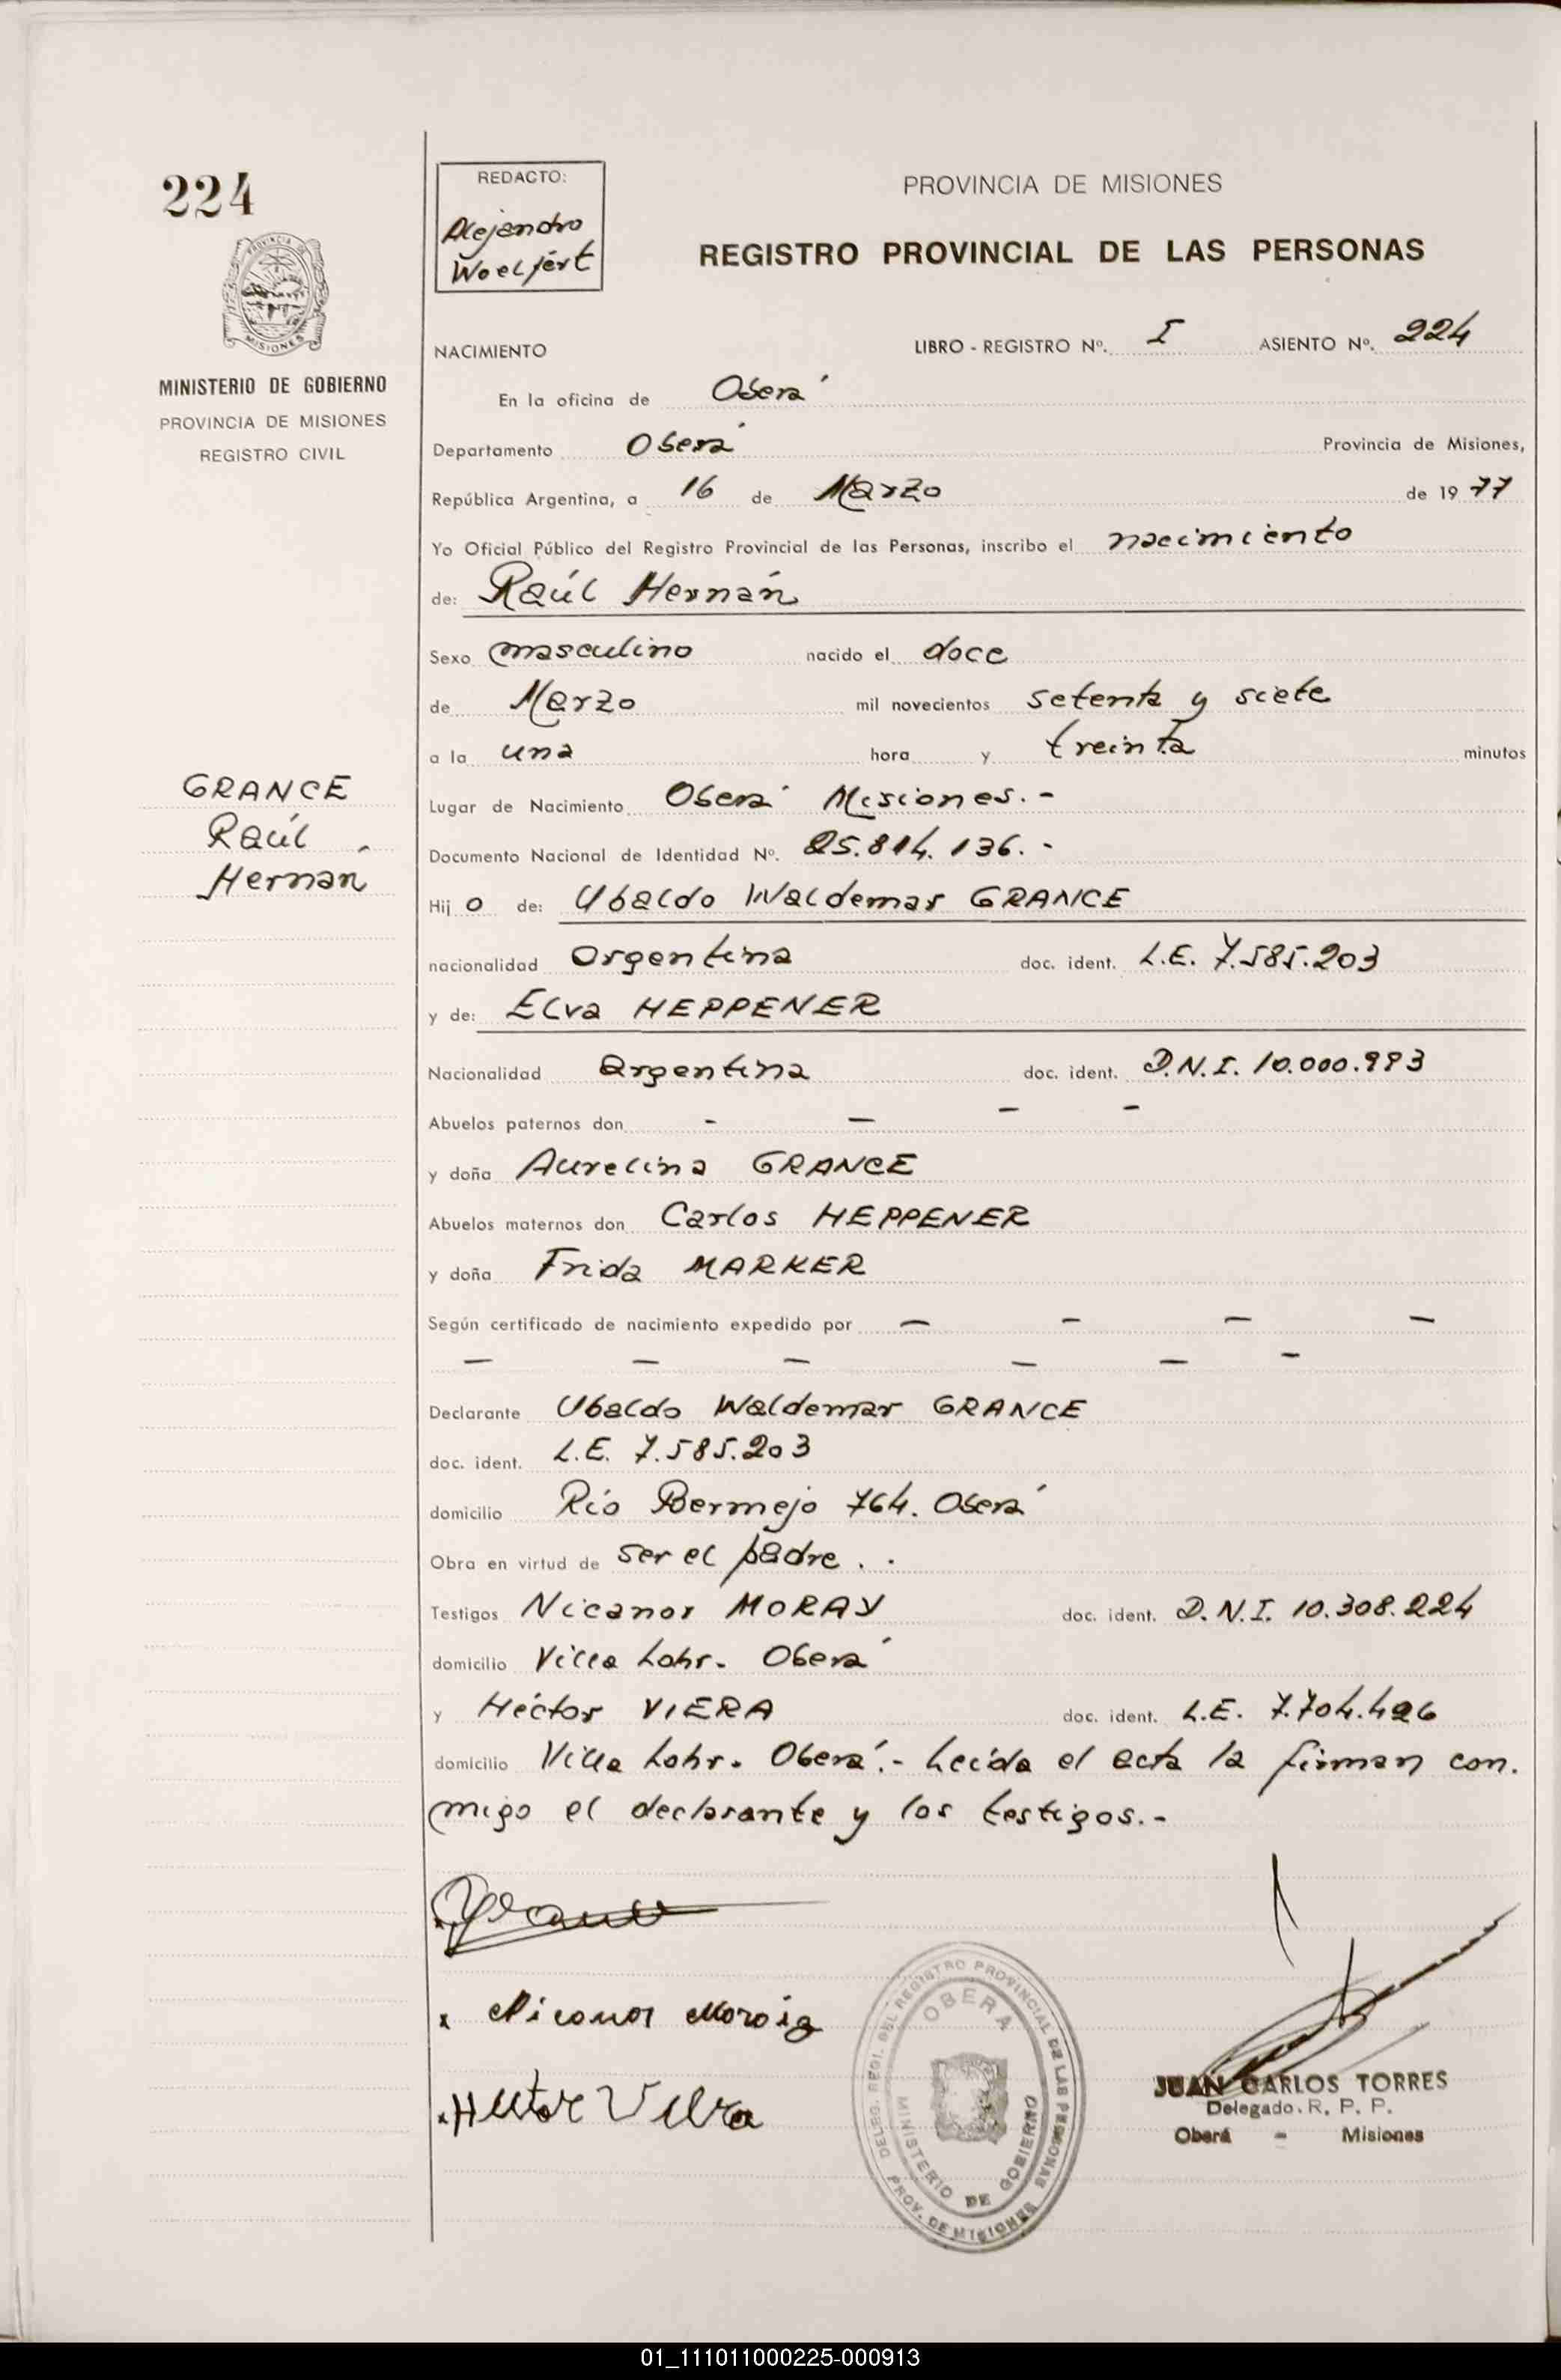 224
PROVINCIA DE
MISIONES
MINISTERIO DE GOBIERNO
PROVINCIA DE MISIONES
REGISTRO CIVIL
GRANCE
Raúl
Hernán
REDACTO:
Alejandro
Woelfert
PROVINCIA DE MISIONES
REGISTRO PROVINCIAL DE LAS PERSONAS
NACIMIENTO LIBRO - REGISTRO Nº. I ASIENTO Nº. 224
En la oficina de Oberá
Departamento Oberá Provincia de Misiones,
República Argentina, a 16 de Marzo de 1977
Yo Oficial Público del Registro Provincial de las Personas, inscribo el nacimiento
de: Raúl Hernán
Sexo masculino nacido el doce
de Marzo mil novecientos setenta y siete
a la una hora y treinta minutos
Lugar de Nacimiento Oberá Misiones.-
Documento Nacional de Identidad Nº. 25.814.136.-
Hijo de: Ubaldo Waldemar GRANCE
nacionalidad Argentina doc. ident. L.E. 7.585.203
y de: Elva HEPPENER
Nacionalidad Argentina doc. ident. D.N.I. 10.000.993
Abuelos paternos don - - - -
y doña Aurelina GRANCE
Abuelos maternos don Carlos HEPPENER
y doña Frida MARKER
Según certificado de nacimiento expedido por - - - -
- - - - - -
Declarante Ubaldo Waldemar GRANCE
doc. ident. L.E. 7.585.203
domicilio Río Bermejo 764. Oberá
Obra en virtud de ser el padre. .
Testigos Nicanor MORAY doc. ident. D.N.I. 10.308.224
domicilio Villa Lohr. Oberá
y Héctor VIERA doc. ident. L.E. 7.704.496
domicilio Villa Lohr. Oberá.- Leída el acta la firman con.
migo el declarante y los testigos.-
x Nicanor
x Hector Viera
DELEG. REGI. DEL REGISTRO PROVINCIAL DE LAS PERSONAS
PROV. DE MISIONES
OBERA
MINISTERIO DE GOBIERNO
JUAN CARLOS TORRES
Delegado. R. P. P.
Oberá - Misiones
01_111011000225-000913